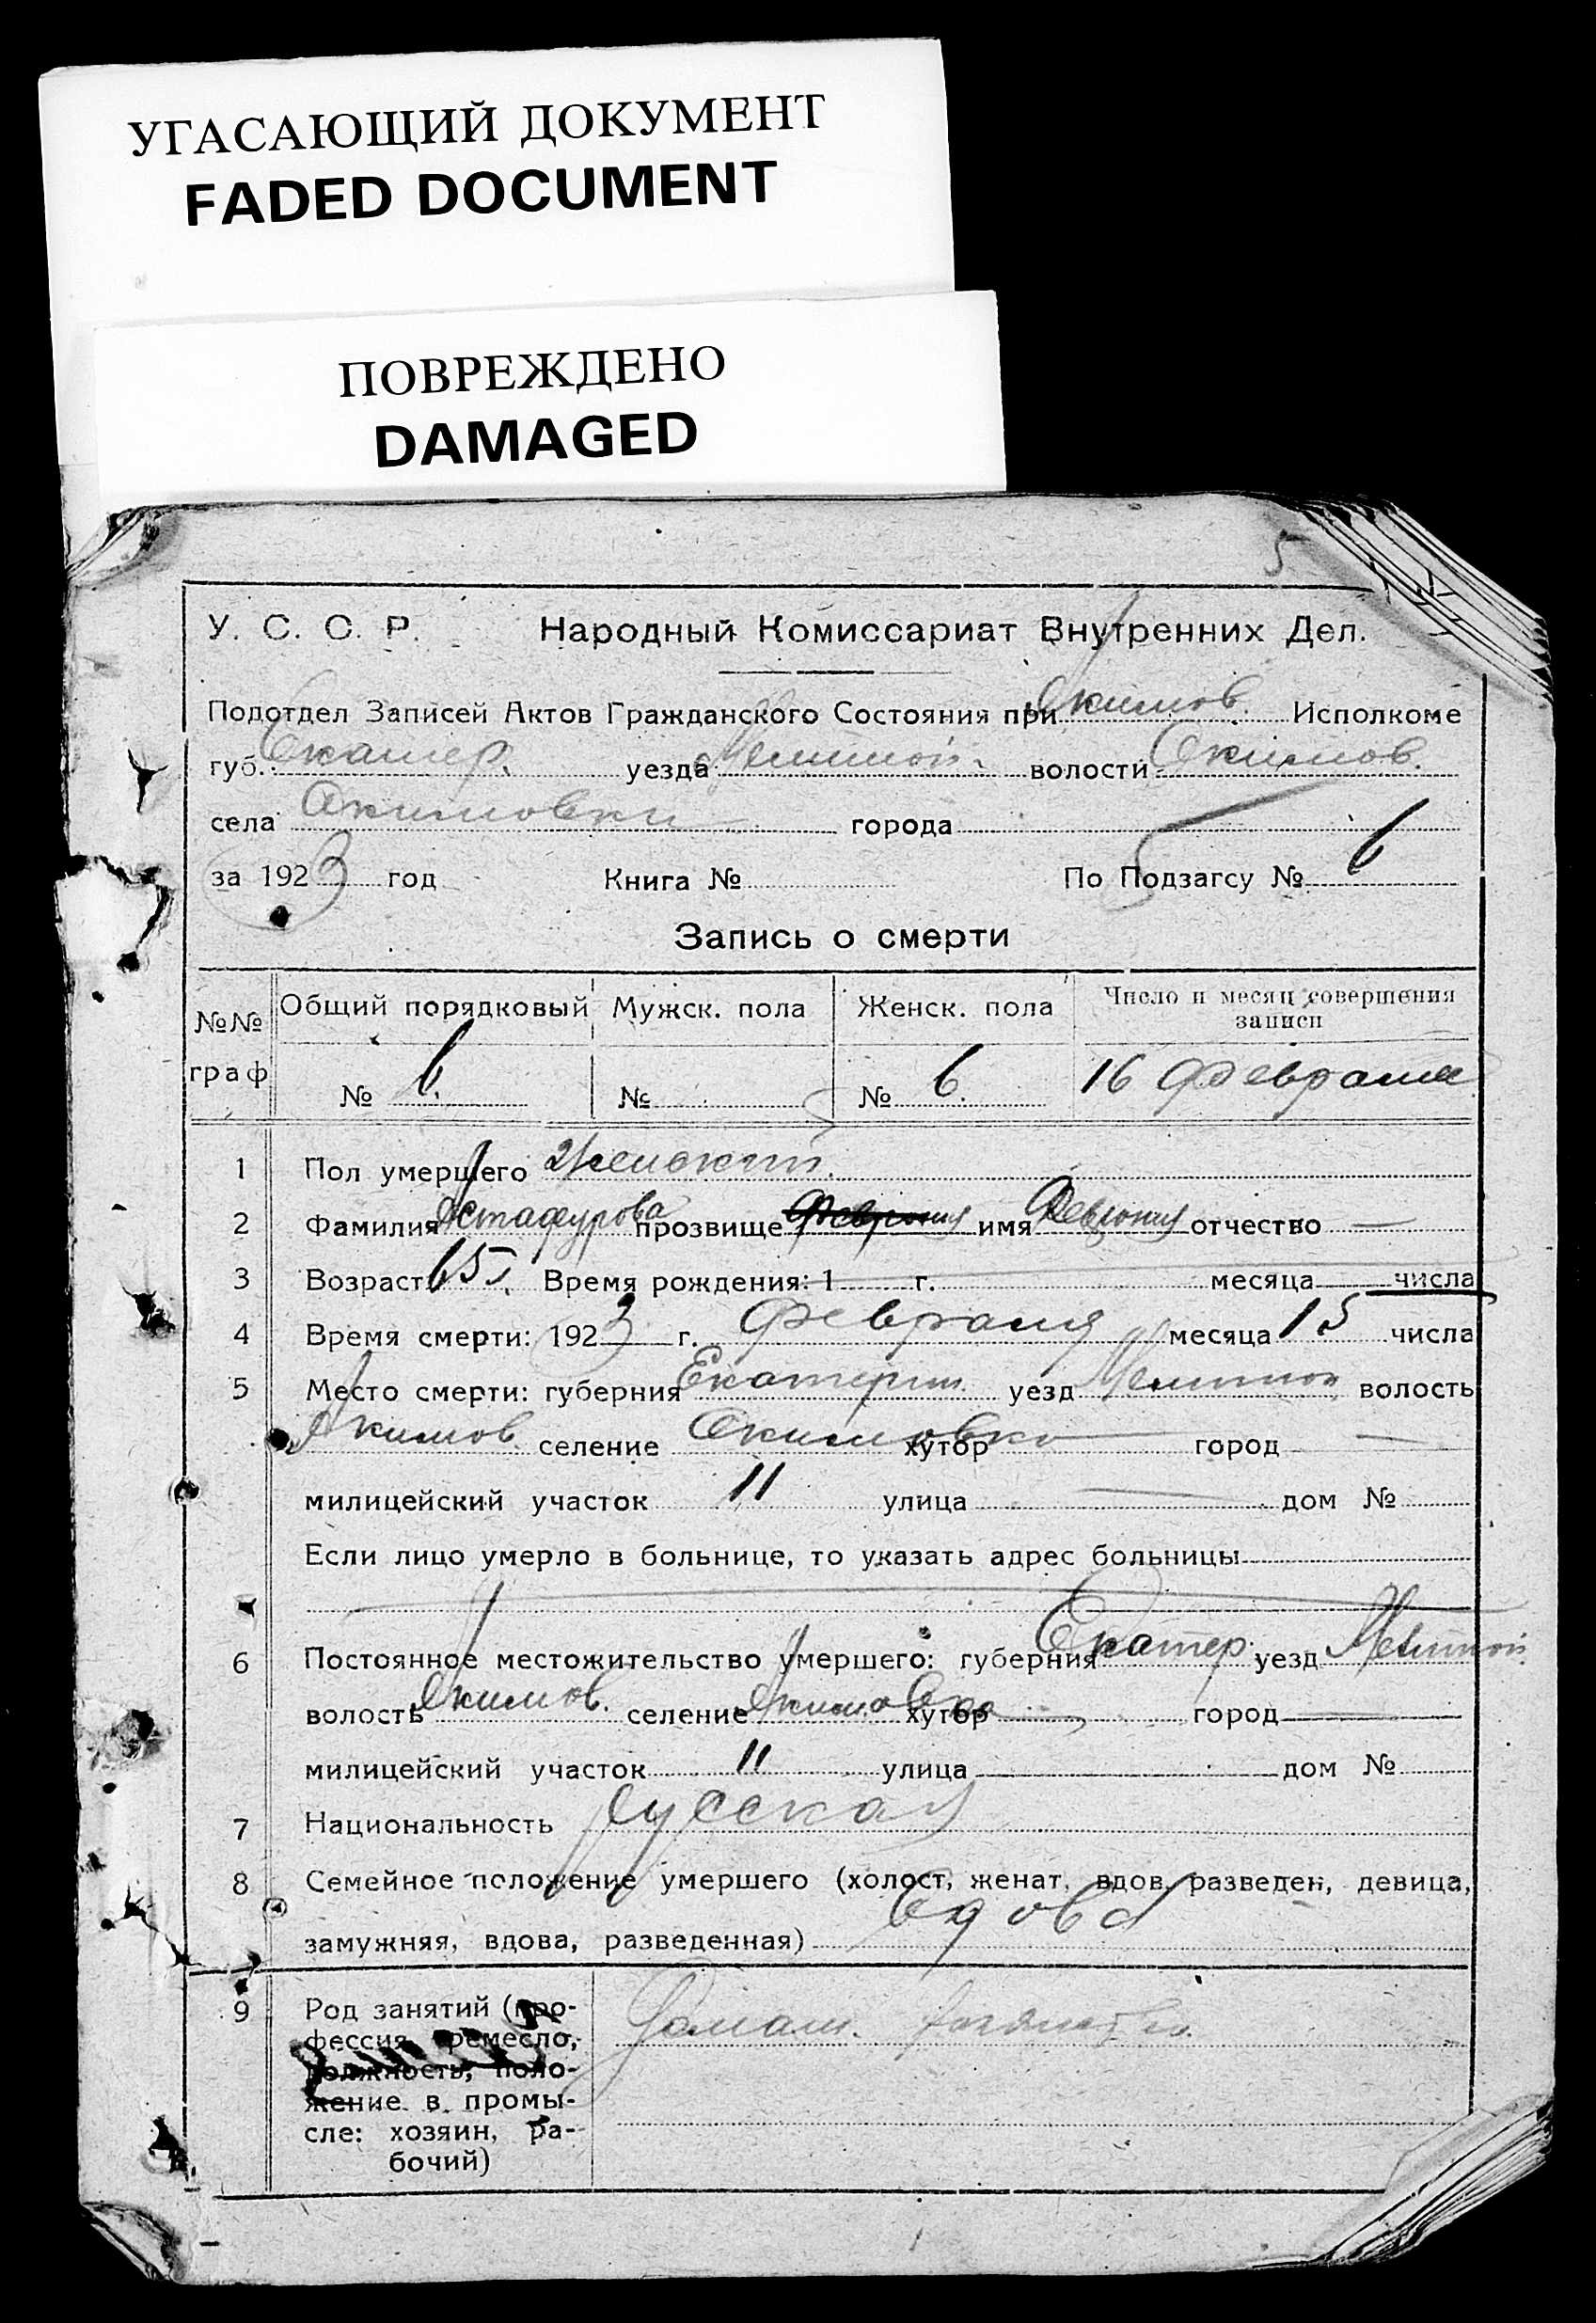 УГАСАЮЩИЙ ДОКУМЕНТ
FADED DOCUMENT
ПОВРЕЖДЕНО
DAMAGED
5
У. С. С. Р. Народный Комиссариат Внутренних Дел.
Подотдел Записей Актов Гражданского Состояния при Акимов. Исполкоме
губ. Екатер. уезда Мелитоп. волости Акимов.
села Акимовки города
за 1923 год Книга № По Подзагсу № 6
Запись о смерти
№№ граф Общий порядковый Мужск. пола Женск. пола Число и месяц совершения записи
№ 6. № № 6. 16 февраля
1 Пол умершего Женский.
2 Фамилия Астафурова прозвище Феврония имя Феврония отчество —
3 Возраст 65 Время рождения: 1 г. месяца числа
4 Время смерти: 1923 г. февраля месяца 15 числа
5 Место смерти: губерния Екатерин уезд Мелитоп волость
Акимов. селение Акимовка хутор город —
милицейский участок 11 улица — дом №
Если лицо умерло в больнице, то указать адрес больницы
6 Постоянное местожительство умершего: губерния Екатер. уезд Мелитоп.
волость Акимов. селение Акимовка хутор город
милицейский участок 11 улица дом №
7 Национальность Русская
8 Семейное положение умершего (холост, женат, вдов, разведен, девица,
замужняя, вдова, разведенная) вдова
9 Род занятий (про-
фессия, ремесло,
должность, поло-
жение в промы-
сле: хозяин, ра-
бочий)
Домаш.